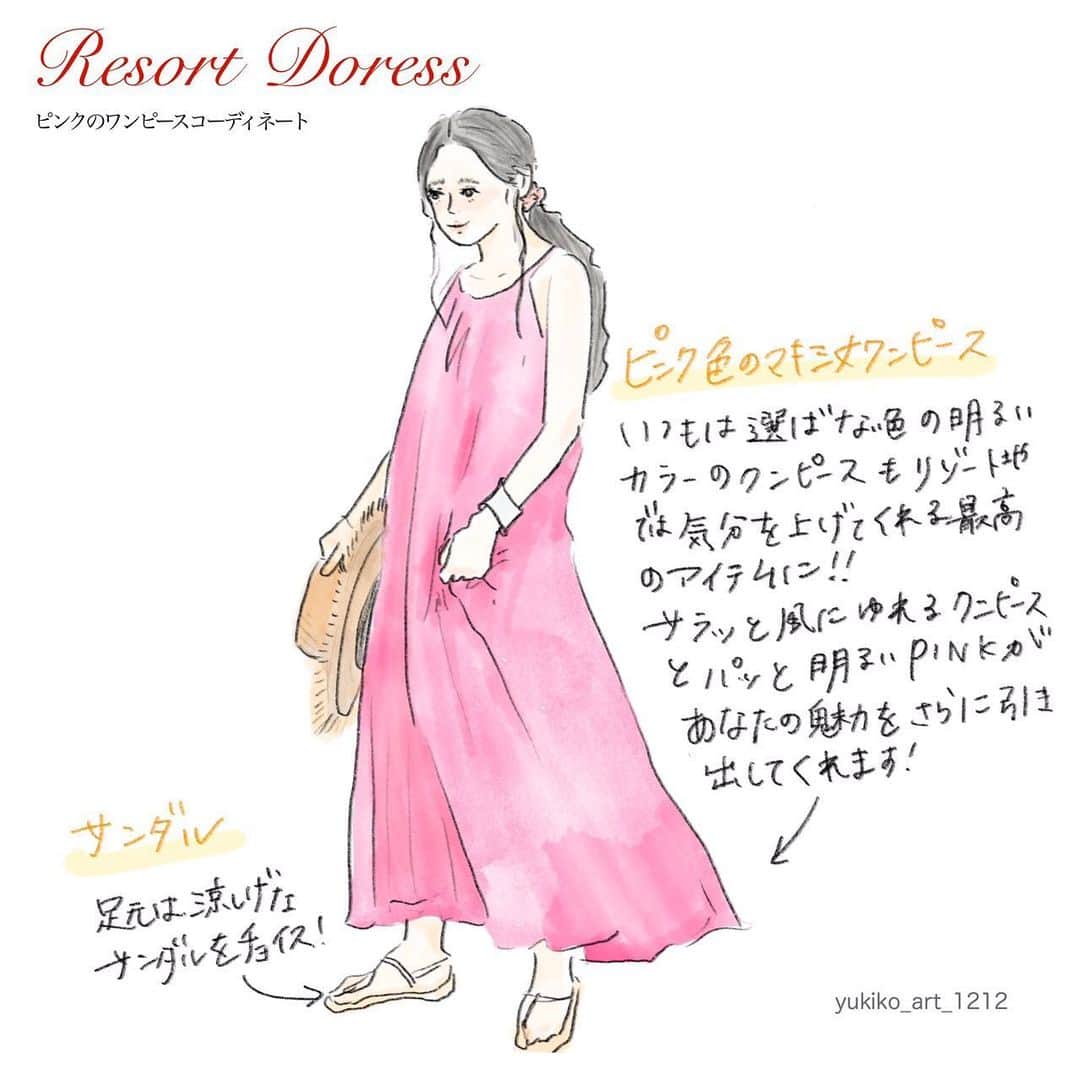 Resort Doress
ピンクのワンピースコーディネート
ピンク色のマキシ丈ワンピース
いつもは選ばない色の明るい
カラーのワンピースもリゾート地
では気分を上げてくれる最高
のアイテムに!!
サラッと風にゆれるワンピース
とパッと明るいPINKが
あなたの魅力をさらに引き
出してくれます!
サンダル
足元は涼しげな
サンダルをチョイス!
yukiko_art_1212